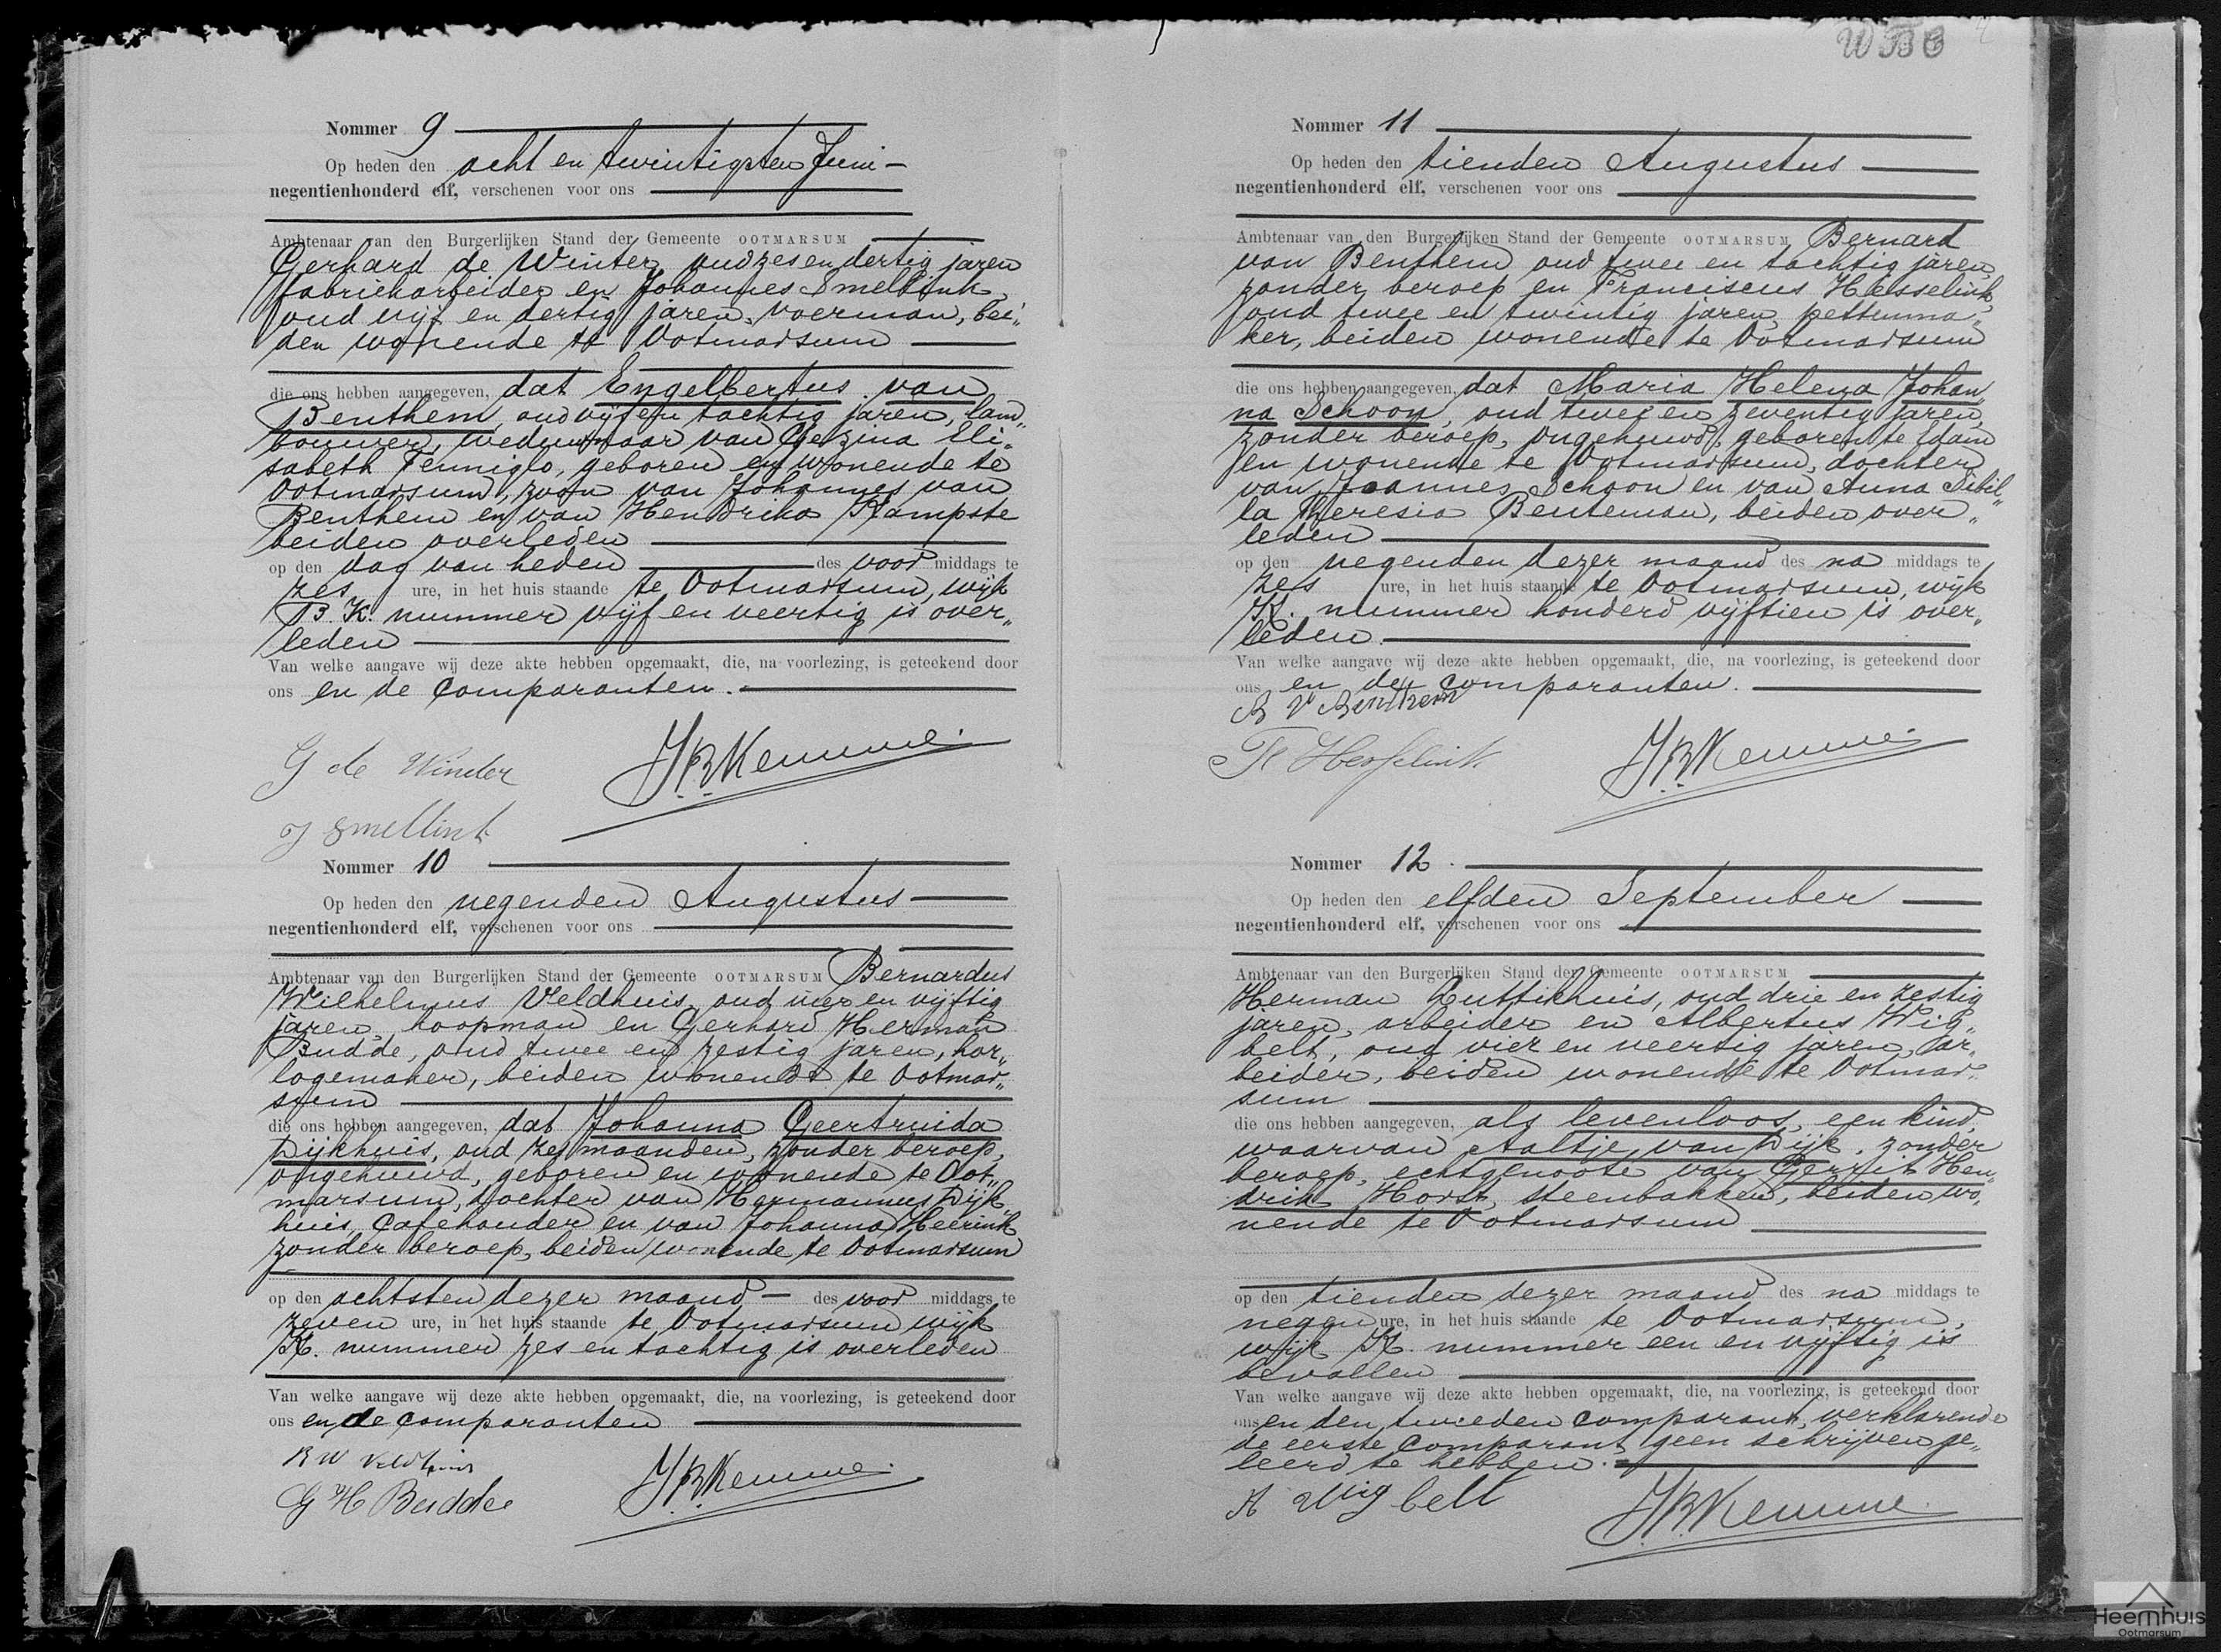 Nommer 9
Op heden den acht en twintigsten Juni
negentienhonderd elf, verschenen voor ons
Ambtenaar van den Burgerlijken Stand der Gemeente OOTMARSUM
Gerhard de Winter, oud zes en dertig jaren
fabriekarbeider en Johannes Smellink
oud vijf en dertig jaren, voerman, bei„
den wonende te Ootmarsum
die ons hebben aangegeven, dat Engelbertus van
Benthem, oud vijf en tachtig jaren, land„
bouwer, weduwnaar van Gezina Eli„
sabeth Tenniglo, geboren en wonende te
Ootmarsum, zoon van Johannes van
Benthem en van Hendrika Kampste
beiden overleden
op den dag van heden des voor middags te
zes ure, in het huis staande te Ootmarsum, wijk
B. K. nummer vijf en veertig is over„
leden
Van welke aangave wij deze akte hebben opgemaakt, die, na voorlezing, is geteekend door
ons en de comparanten.
G de Winder
JBKemme.
J Smellink
Nommer 10
Op heden den negenden Augustus
negentienhonderd elf, verschenen voor ons
Ambtenaar van den Burgerlijken Stand der Gemeente OOTMARSUM Bernardus
Wilhelmus Veldhuis, oud vier en vijftig
jaren, koopman en Gerhard Herman
Budde, oud twee en zestig jaren, hor„
logemaker, beiden wonende te Ootmar„
sum
die ons hebben aangegeven, dat Johanna Geertruida
Dijkhuis, oud zes maanden, zonder beroep,
ongehuwd, geboren en wonende te Oot„
marsum, dochter van Hermannus Dijk„
huis, Cafehouder en van Johanna Heerink
zonder beroep, beiden wonende te Ootmarsum
op den achtsten dezer maand des voor middags te
zeven ure, in het huis staande te Ootmarsum wijk
K. nummer zes en tachtig is overleden
Van welke aangave wij deze akte hebben opgemaakt, die, na voorlezing, is geteekend door
ons en de comparanten
B W Veldhuis
JBKemme.
G H Budde
Nommer 11
Op heden den tienden Augustus
negentienhonderd elf, verschenen voor ons
Ambtenaar van den Burgerlijken Stand der Gemeente OOTMARSUM Bernard
van Benthem oud twee en tachtig jaren,
zonder beroep en Franciscus Hesselink,
oud twee en twintig jaren, pettenma„
ker, beiden wonende te Ootmarsum
die ons hebben aangegeven, dat Maria Helena Johan„
na Schoon, oud twee en zeventig jaren,
zonder beroep, ongehuwd, geboren te Edam
en wonende te Ootmarsum, dochter
van Joannes Schoon en van Anna Sibil„
la Theresia Benteman, beiden over„
leden
op den negenden dezer maand des na middags te
zes ure, in het huis staande te Ootmarsum, wijk
K. nummer honderd vijftien is over„
leden.
Van welke aangave wij deze akte hebben opgemaakt, die, na voorlezing, is geteekend door
ons en de comparanten.
B V Benthem
Fr Hesselink
JBKemme.
Nommer 12.
Op heden den elfden September
negentienhonderd elf, verschenen voor ons
Ambtenaar van den Burgerlijken Stand der Gemeente OOTMARSUM
Herman Luttikhuis, oud drie en zestig
jaren, arbeider en Albertus Wig„
belt, oud vier en veertig jaren, ar„
beider, beiden wonende te Ootmar„
sum
die ons hebben aangegeven, als levenloos, een kind,
waarvan Aaltje van Dijk, zonder
beroep, echtgenoote van Gerrit Hen„
drik Horst, steenbakker, beiden wo„
nende te Ootmarsum
op den tienden dezer maand des na middags te
negen ure, in het huis staande te Ootmarsum,
wijk K. nummer een en vijftig is
bevallen
Van welke aangave wij deze akte hebben opgemaakt, die, na voorlezing, is geteekend door
ons en den tweeden comparant, verklarende
de eerste comparant geen schrijven ge„
leerd te hebben.
A Wigbelt
JBKemme.
Heemhuis
Ootmarsum